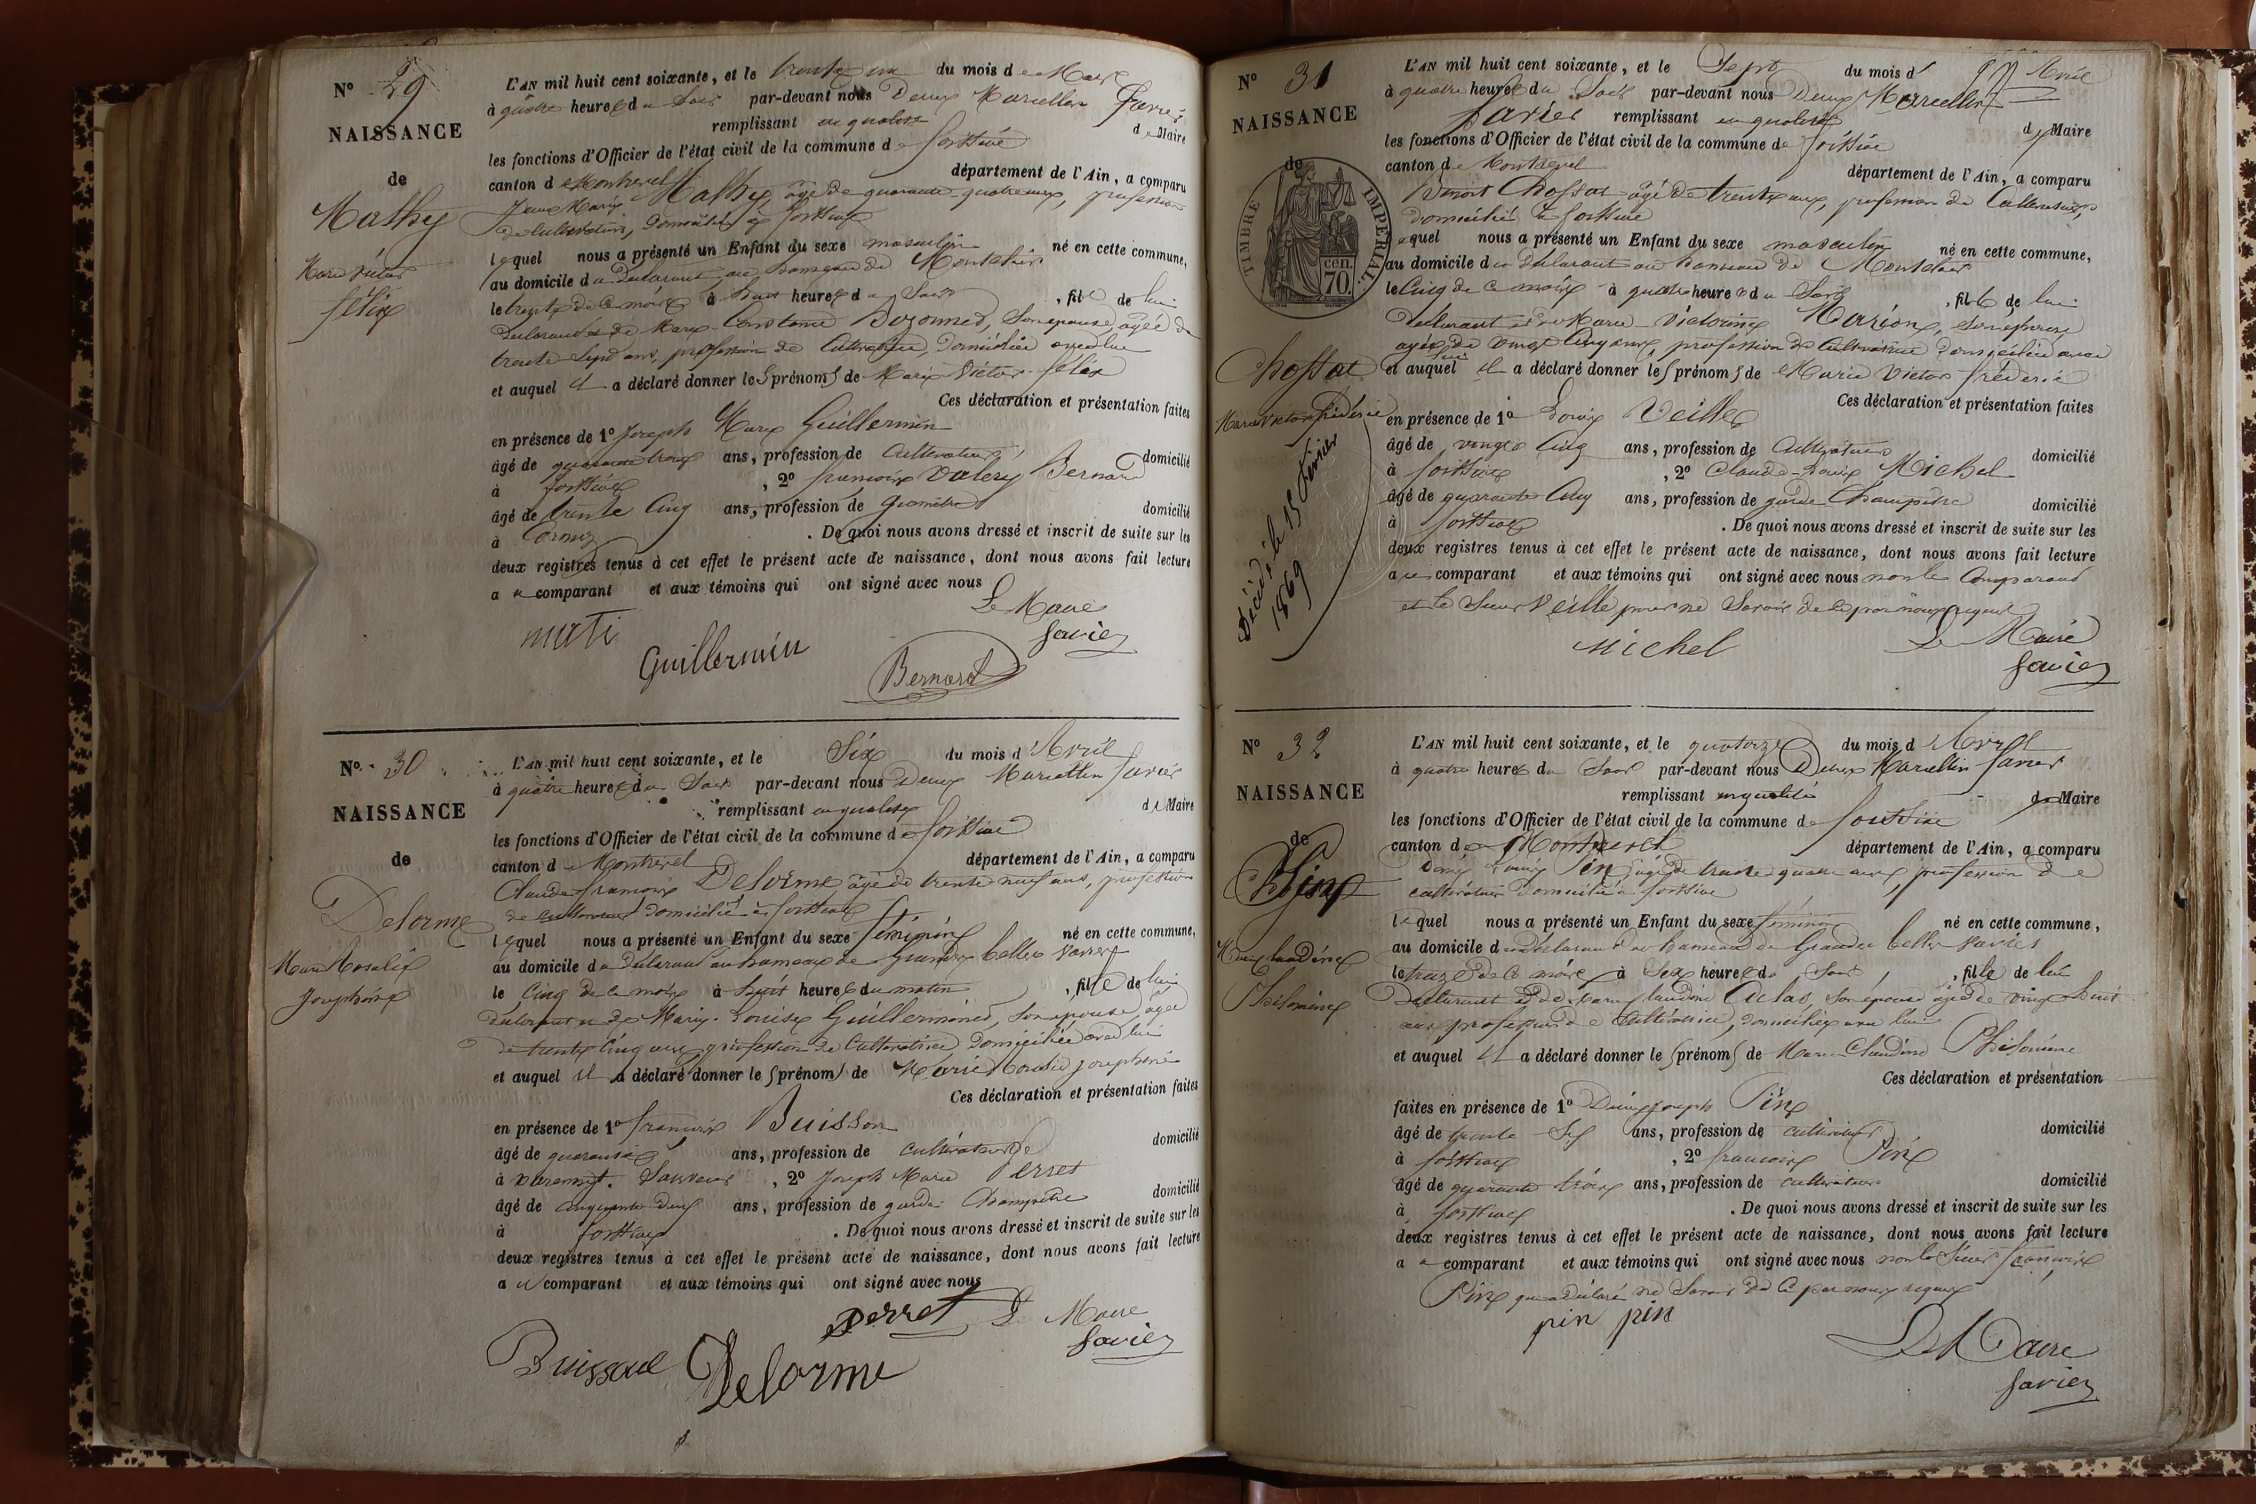 N° 29
NAISSANCE
de
Mathy
Marie Victor
félix
L'AN mil huit cent soixante, et le trente un du mois de Mars
à quatre heures du Soir par-devant nous Denis Marcellin Savier
remplissant en qualité de Maire
les fonctions d'Officier de l'état civil de la commune de
canton de Montrevel département de l'Ain, a comparu
Jean Marie Mathy, âgé de quarante quatre ans, profession
de Cultivateur, domicilié à
lequel nous a présenté un Enfant du sexe masculin né en cette commune,
au domicile du déclarant, au hameau de
le trente de ce mois à huit heures du Soir, fils de lui
déclarant et de Marie Constance son épouse, âgée de
trente Sept ans, profession de Cultivatrice, Domiciliée avec lui
et auquel il a déclaré donner les prénoms de Marie Victor félix
Ces déclaration et présentation faites
en présence de 1° Joseph Marie Guillermin
âgé de quarante trois ans, profession de Cultivateur, domicilié
à , 2° françois Valery Bernard
âgé de trente Cinq ans, profession de Géomètre domicilié
à . De quoi nous avons dressé et inscrit de suite sur les
deux registres tenus à cet effet le présent acte de naissance, dont nous avons fait lecture
au comparant et aux témoins qui ont signé avec nous
Le Maire
mati
Guillermin
Bernard
Savier
N° 30
NAISSANCE
de
Delorme
Marie Rosalie
Joséphine
L'AN mil huit cent soixante, et le Six du mois d'Avril
à quatre heures du Soir par-devant nous Denis Marcellin Savier
remplissant en qualité de Maire
les fonctions d'Officier de l'état civil de la commune de
canton de Montrevel département de l'Ain, a comparu
Claude françois Delorme âgé de trente neuf ans, profession
de cultivateur domicilié à
lequel nous a présenté un Enfant du sexe féminin né en cette commune,
au domicile du déclarant au hameau de
le Cinq de ce mois à huit heures du matin, fille de lui
déclarant et de Marie Louise son épouse, âgée
de trente Cinq ans, profession de Cultivatrice domiciliée avec lui
et auquel il a déclaré donner les prénoms de Marie Rosalie joséphine
Ces déclaration et présentation faites
en présence de 1° françois Buisson
âgé de quarante ans, profession de cultivateur domicilié
à , 2° Joseph Marie Perret
âgé de cinquante deux ans, profession de garde Champêtre domicilié
à . De quoi nous avons dressé et inscrit de suite sur les
deux registres tenus à cet effet le présent acte de naissance, dont nous avons fait lecture
au comparant et aux témoins qui ont signé avec nous
Perret Le Maire
Savier
Buisson Delorme
N° 31
NAISSANCE
de
TIMBRE IMPÉRIAL
70 cen.
Chossat
Marie Victor frédéric
Décédé le 15 février
1869
L'AN mil huit cent soixante, et le Sept du mois d'Avril
à quatre heures du Soir par-devant nous Denis Marcellin
Savier remplissant en qualité de Maire
les fonctions d'Officier de l'état civil de la commune de
canton de Montrevel département de l'Ain, a comparu
Benoit Chossat âgé de trente ans, profession de Cultivateur,
domicilié à
lequel nous a présenté un Enfant du sexe masculin né en cette commune,
au domicile du déclarant au hameau de
le Cinq de ce mois à quatre heures du Soir, fils de lui
déclarant et de Marie Victorine Marion, son épouse,
âgée de vingt Cinq ans, profession de Cultivatrice domiciliée avec
lui
et auquel il a déclaré donner les prénoms de Marie Victor frédéric
Ces déclaration et présentation faites
en présence de 1° Louis Veille
âgé de vingt Cinq ans, profession de Cultivateur domicilié
à , 2° Claude-Louis Michel
âgé de quarante Cinq ans, profession de garde Champêtre domicilié
à . De quoi nous avons dressé et inscrit de suite sur les
deux registres tenus à cet effet le présent acte de naissance, dont nous avons fait lecture
au comparant et aux témoins qui ont signé avec nous non le Comparant
et le Sieur Veille pour ne Savoir de ce par nous requis
Michel Le Maire
Savier
N° 32
NAISSANCE
de
Pin
Marie Claudine
Philomène
L'AN mil huit cent soixante, et le quatorze du mois d'Avril
à quatre heures du Soir par-devant nous Denis Marcellin Savier
remplissant en qualité de Maire
les fonctions d'Officier de l'état civil de la commune de
canton de Montrevel département de l'Ain, a comparu
Denis Louis Pin, âgé de trente quatre ans, profession de
cultivateur domicilié à
lequel nous a présenté un Enfant du sexe féminin né en cette commune,
au domicile du déclarant au hameau de
le treize de ce mois à Six heures du Soir, fille de lui
déclarant et de Marie Claudine son épouse âgée de vingt huit
ans profession de Cultivatrice, domiciliée avec lui
et auquel il a déclaré donner les prénoms de Marie Claudine Philomène
Ces déclaration et présentation
faites en présence de 1° Denis Joseph Pin
âgé de trente Six ans, profession de cultivateur domicilié
à , 2° francois Pin
âgé de quarante trois ans, profession de cultivateur domicilié
à . De quoi nous avons dressé et inscrit de suite sur les
deux registres tenus à cet effet le présent acte de naissance, dont nous avons fait lecture
au comparant et aux témoins qui ont signé avec nous non le Sieur françois
Pin qui a déclaré ne Savoir de ce par nous requis
pin pin
Le Maire
Savier